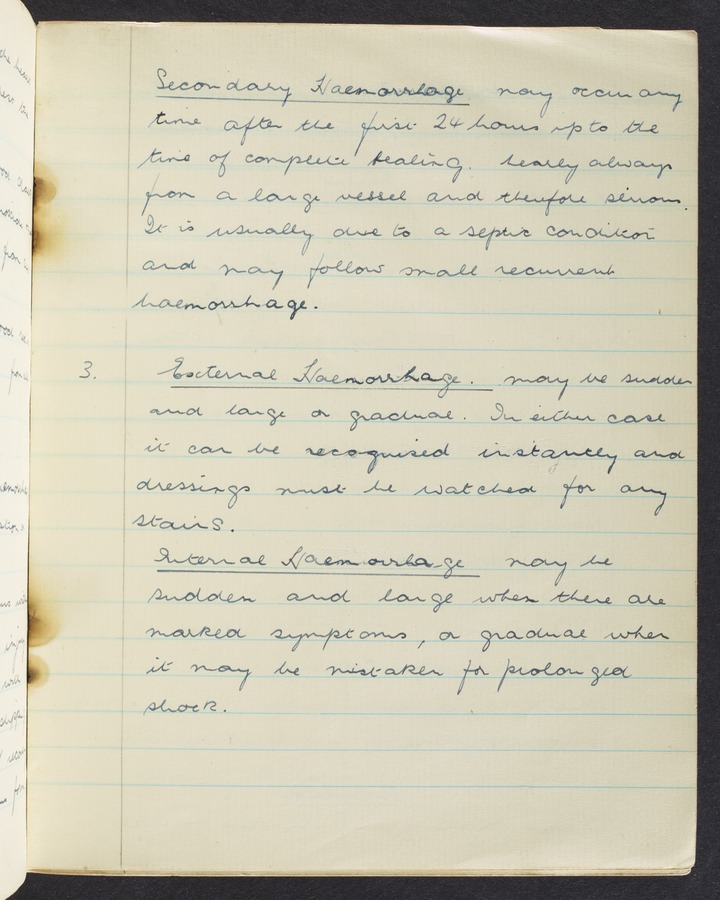 Secondary Haemorrhage may occur any
time after the first 24 hours up to the
time of complete healing. Nearly always
from a large vessel and therefore serious.
It is usually due to a septic condition
and may follow small recurrent
haemorrhage.
3. External Haemorrhage. may be sudden
and large or gradual. In either case
it can be recognised instantly and
dressings must be watched for any
stains.
Internal Haemorrhage may be
sudden and large when there are
marked symptoms, or gradual when
it may be mistaken for prolonged
shock.